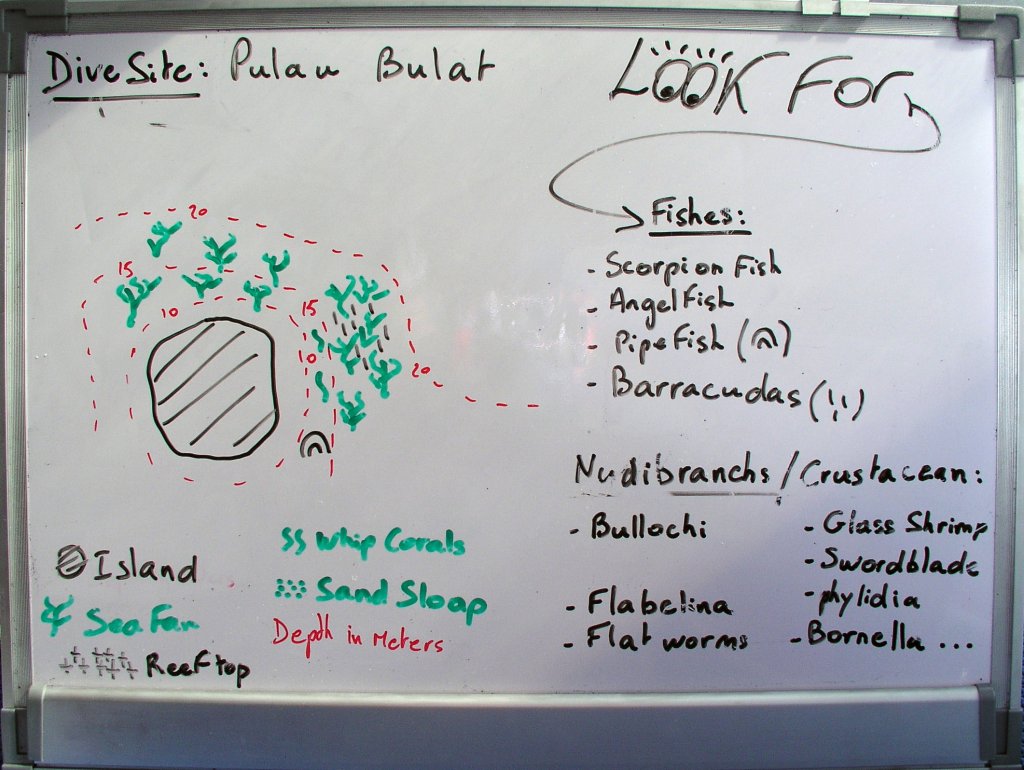 Dive Site: Pulau Bulat
LOOK FOR
Fishes:
- Scorpion Fish
- AngelFish
- PipeFish ( )
- Barracudas (¦¦¦)
Nudibranchs / Crustacean:
- Bullochi
- Flabelina
- Flat worms
- Glass Shrimp
- Swordblade
- phylidia
- Bornella ...
20
15
10
15
10
20
Island
Sea Fan
ReeF top
SS Whip Corals
Sand Sloap
Depth in Meters